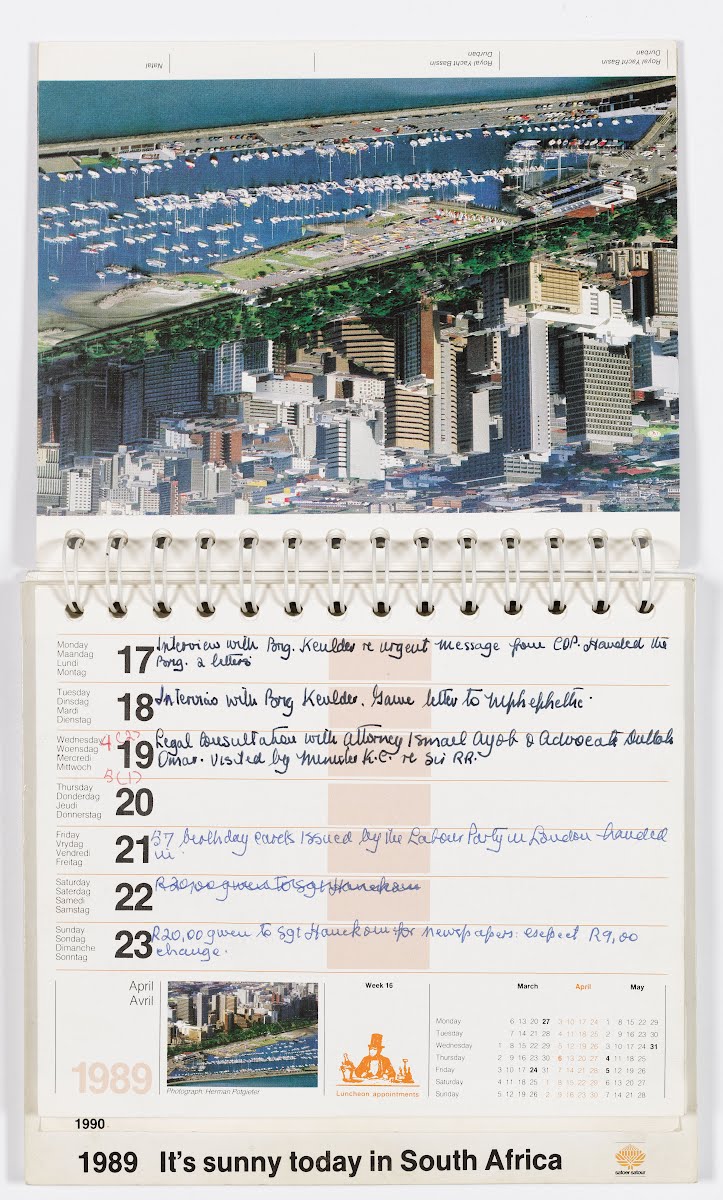 Royal Yacht Bassin
Durban
Royal Yacht Bassin
Durban
Natal
Monday
Maandag
Lundi
Montag
17
Interview with Brig. Keulder re urgent message from COP. Handed the
Brig. 2 letters
Tuesday
Dinsdag
Mardi
Dienstag
18
Interview with Brig Keulder. Gave letter to Mphephethe.
Wednesday
Woensdag
Mercredi
Mittwoch
4 (2)
3 (1)
19
Legal consultation with attorney Ismael Ayob & Advocate Dullah
Omar. Visited by Minister K.C. re Sir RR.
Thursday
Donderdag
Jeudi
Donnerstag
20
Friday
Vrydag
Vendredi
Freitag
21
37 birthday cards issued by the Labour Party in London handed
in.
Saturday
Saterdag
Samedi
Samstag
22
R20,00 given to Sgt Hanekom
Sunday
Sondag
Dimanche
Sonntag
23
R20,00 given to Sgt Hanekom for newspapers: expect R9,00
change.
April
Avril
1989
Photograph: Herman Potgieter
Week 16
Luncheon appointments
March April May
Monday 6 13 20 27 3 10 17 24 1 8 15 22 29
Tuesday 7 14 21 28 4 11 18 25 2 9 16 23 30
Wednesday 1 8 15 22 29 5 12 19 26 3 10 17 24 31
Thursday 2 9 16 23 30 6 13 20 27 4 11 18 25
Friday 3 10 17 24 31 7 14 21 28 5 12 19 26
Saturday 4 11 18 25 1 8 15 22 29 6 13 20 27
Sunday 5 12 19 26 2 9 16 23 30 7 14 21 28
1990
1989 It's sunny today in South Africa
satoer satour